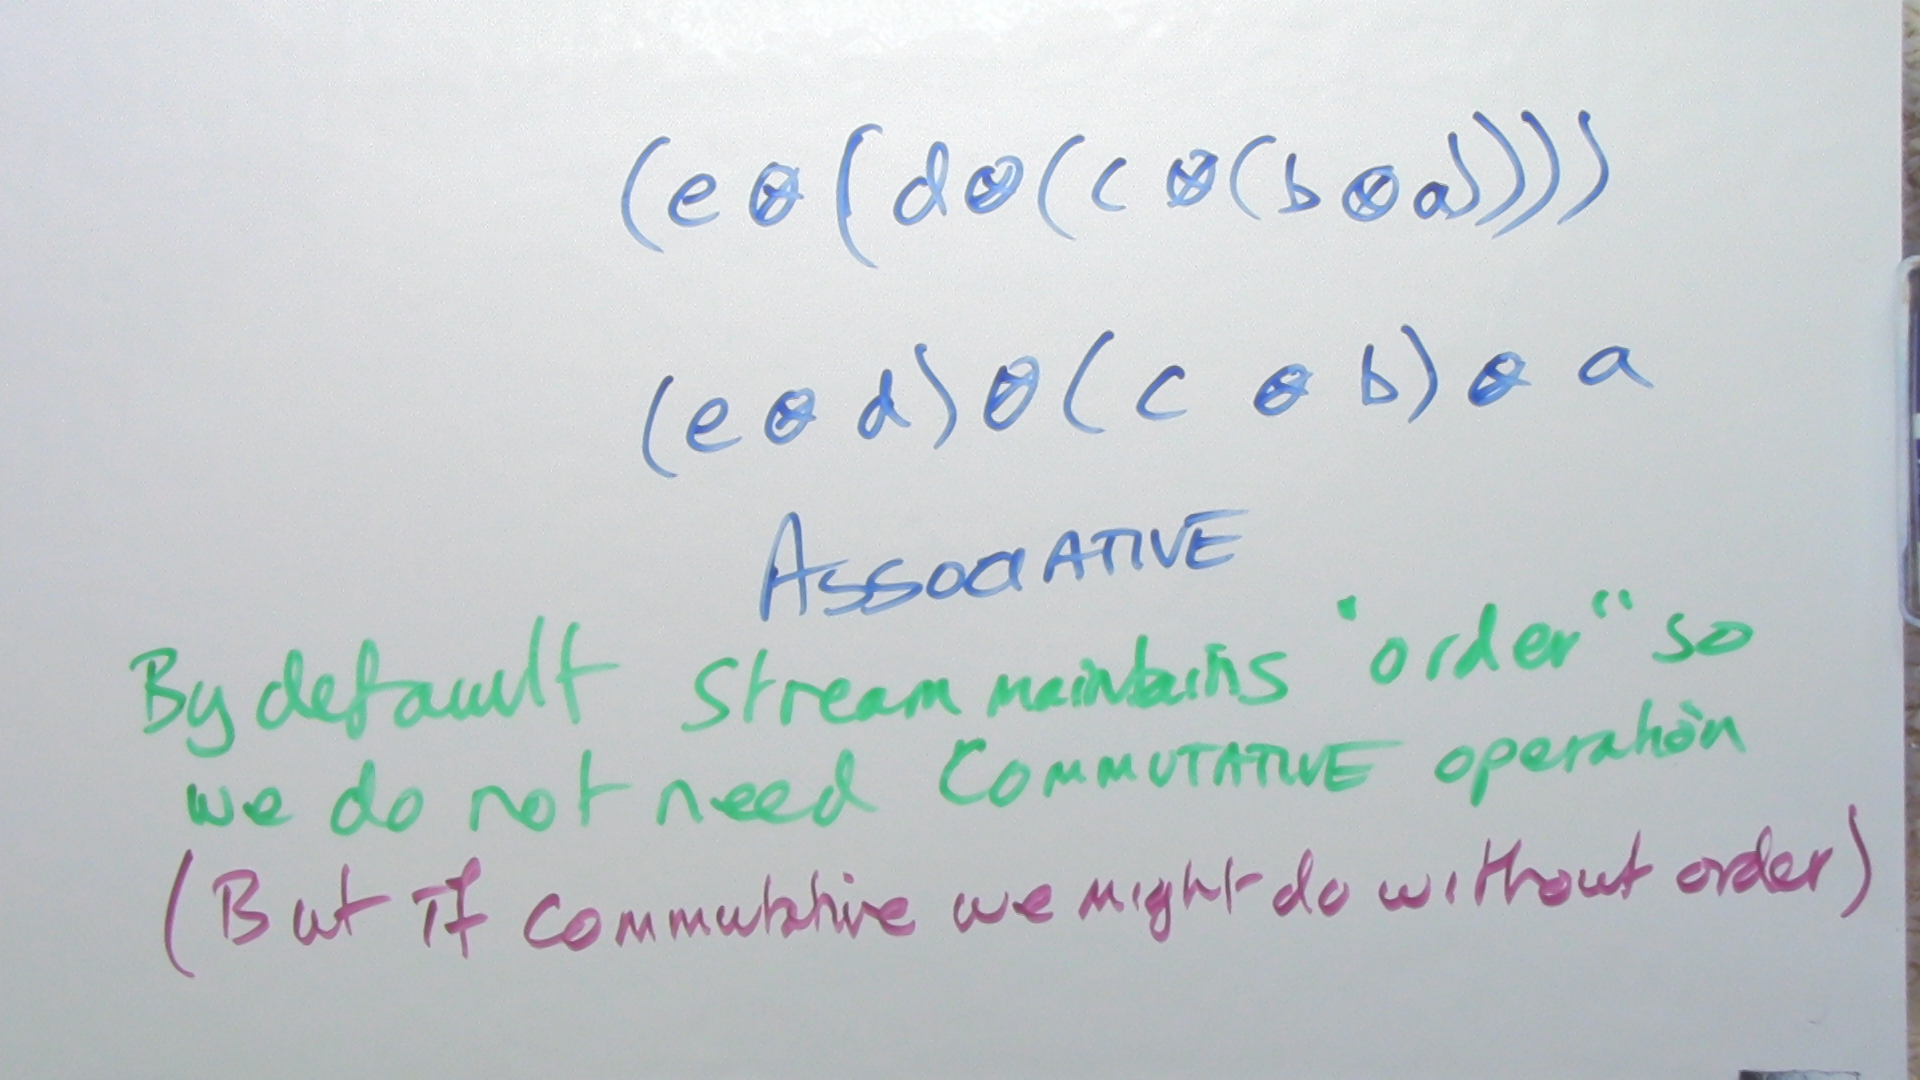 (e ⊗ (d ⊗ (c ⊗ (b ⊗ a))))
(e ⊗ d) ⊗ (c ⊗ b) ⊗ a
ASSOCIATIVE
By default Stream maintains "order" so
we do not need COMMUTATIVE operation
(But if commutative we might do without order)